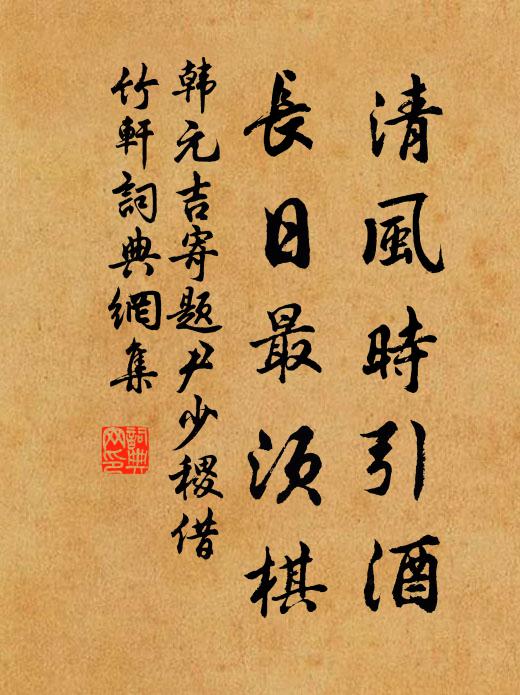 清風時引酒
長日最須棋
韩元吉寄题尹少稷借
竹軒詞典網集
詞典網印